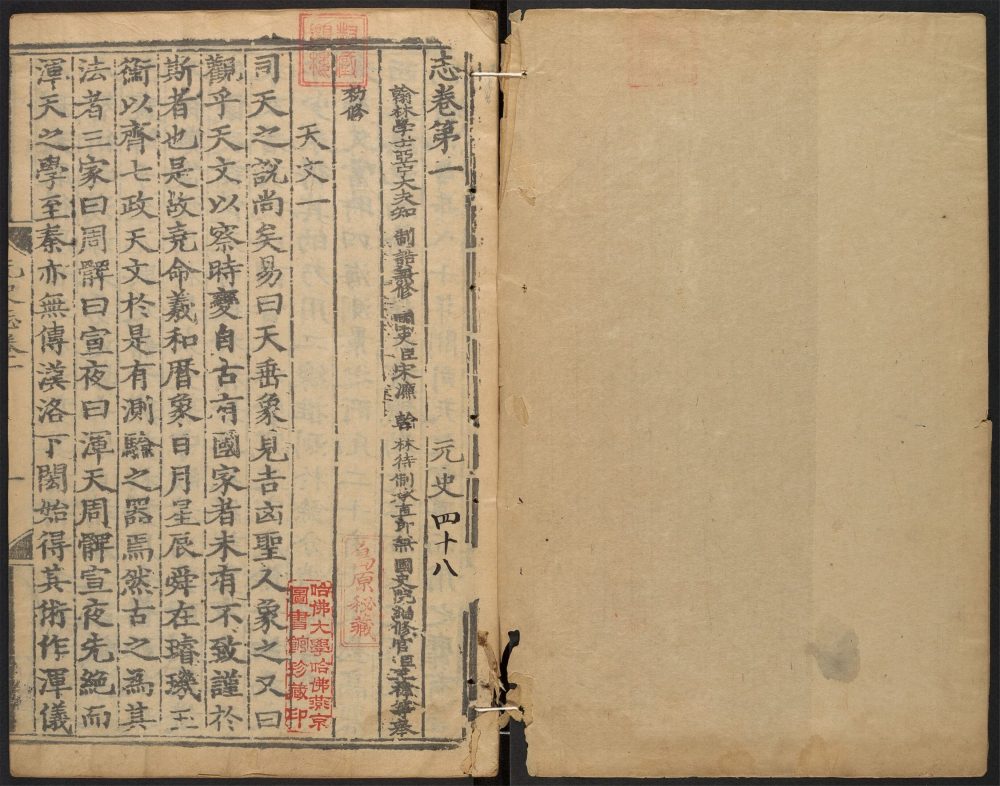 志卷第一 元史四十八
翰林學士亞中大夫知 制誥兼修 國史臣宋濂 翰林待制承直郎兼 國史院編修官臣王禕等奉
敕修
天文一
司天之說尚矣易曰天垂象見吉凶聖人象之又曰
觀乎天文以察時變自古有國家者未有不致謹於
斯者也是故堯命羲和曆象日月星辰舜在璿璣玉
衡以齊七政天文於是有測驗之器焉然古之為其
法者三家曰周髀曰宣夜曰渾天周髀宣夜先絶而
渾天之學至秦亦無傳漢洛下閎始得其術作渾儀
島原秘藏
哈佛大學哈佛燕京
圖書館珍藏印